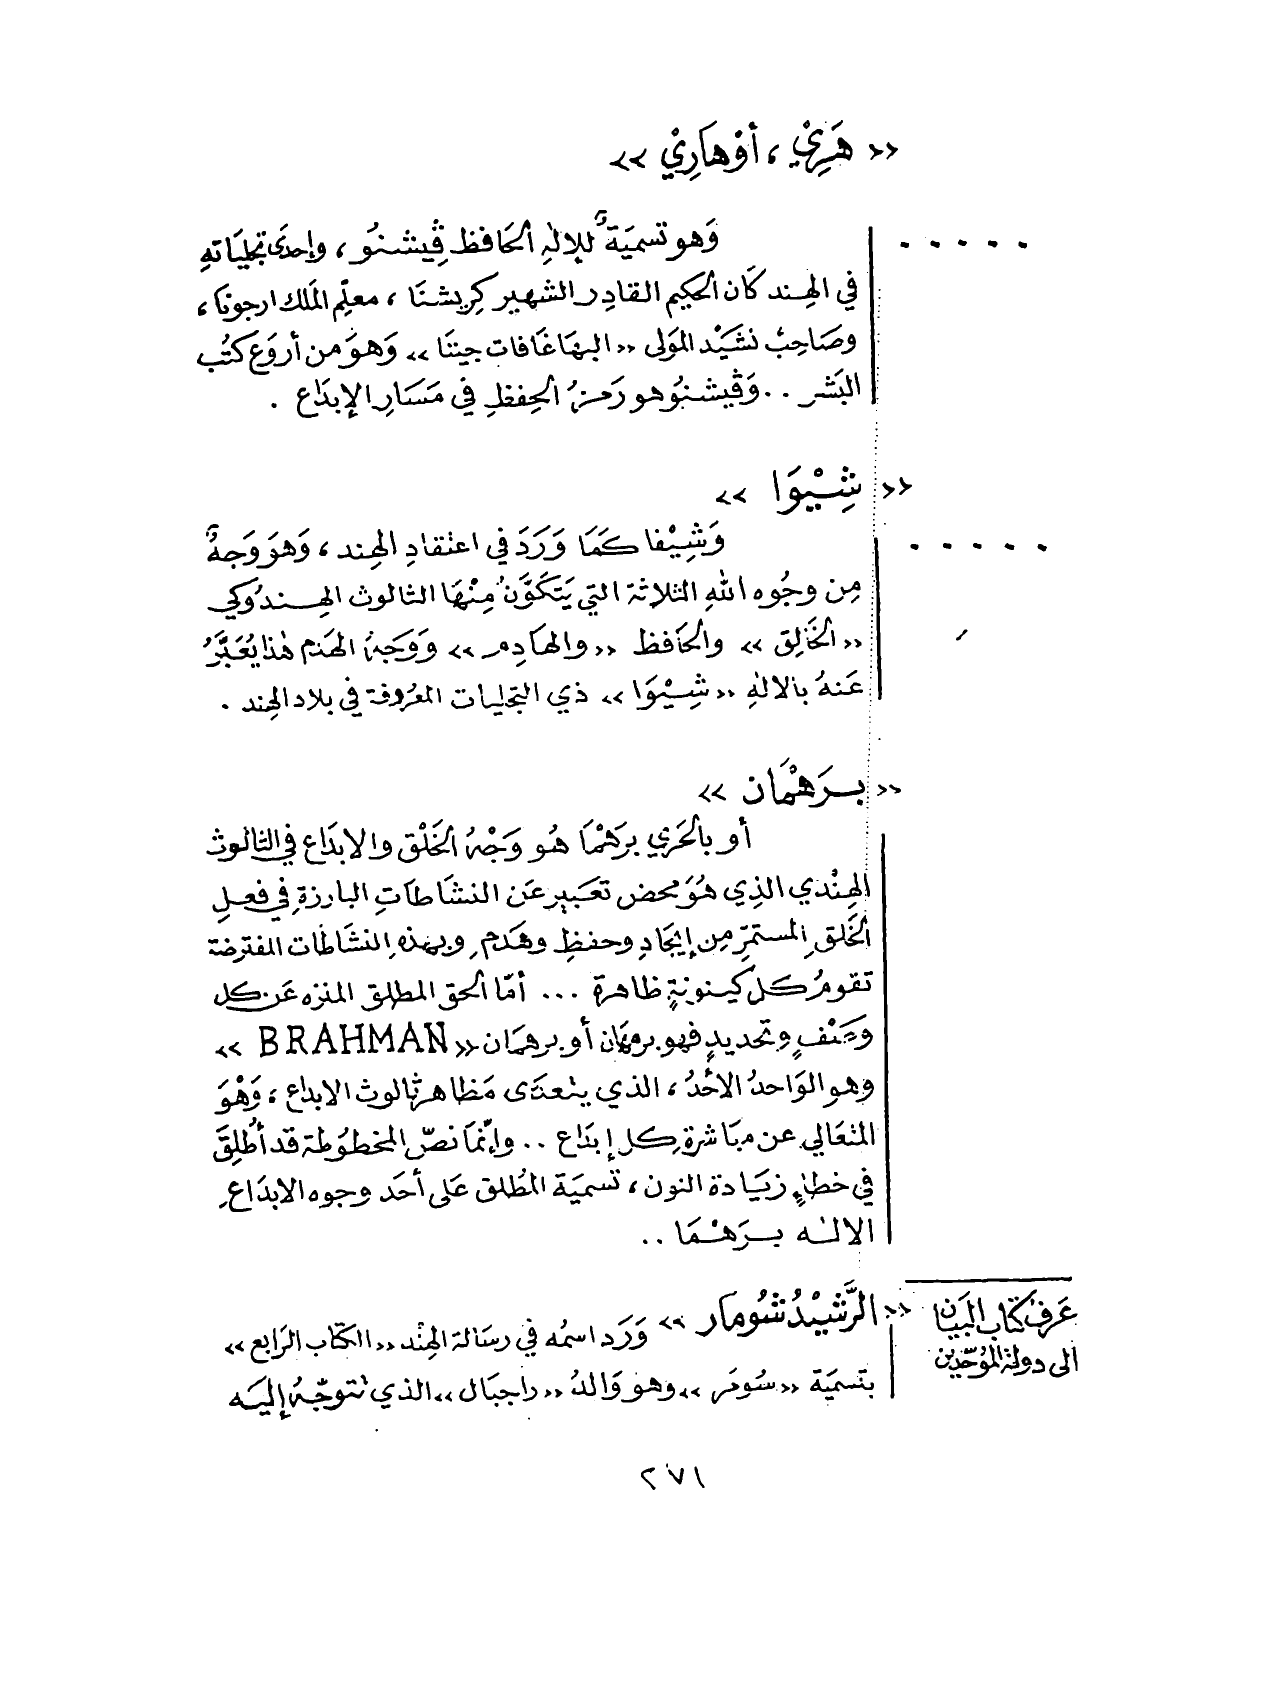 « هَرِيْ ، أوْ هَارِيْ »
وَهو تسميَةٌ للإلٰهِ الحَافظ ڤِيشنُو ، وإحدَى تجلياتهِ
في الهِند كَان الحكيم القادِر الشهير كرِيشنَا ، معلِّم المَلك ارجونَا ،
وصَاحِبُ نشَيْد المَولى « البهَاغَافات جيتَا » وَهوَ من أروَع كتُب
البَشر . . وَڤيشنُو هو رَمزُ الحِفظِ في مَسَارِ الإبدَاع .
« شِيْوَا »
وَشِيْفا كمَا وَرَدَ في اعتقادِ الهِند ، وَهوَ وَجهٌ
مِن وجُوه اللهِ الثلاثة التي يَتكَوَّنُ مِنْهَا الثالوث الهِندُوكي
« الخَالِق » والحَافظ « والهَادِم » وَوَجهُ الهَدم هٰذا يُعَبَّرُ
عَنهُ بالالٰهِ « شِيْوَا » ذي التجليات المَعرُوفة في بلاد الهِند .
« بَرَهْمَان »
أو بالحَري برَهْمَا هُو وَجْهُ الخَلْق والابدَاع في الثالوث
الهِنْدي الذِي هُوَ محض تعَبيرٍ عَن النشَاطَاتِ البارزة في فعلِ
الخَلقِ المستمرِّ مِن إيجَادٍ وحفظٍ وهَدمٍ وبهذهِ النشَاطَات المفترضة
تقومُ كل كينونةٍ ظاهرة ... أمّا الحق المطلق المنزه عَن كل
وصْفٍ وتحديدٍ فهو برمهَان أو برهمَان « BRAHMAN »
وهو الوَاحدُ الأحَدُ ، الذي يتعدَى مَظاهر ثالوث الابداع ، وَهْوَ
المتعَالي عن مبَاشرةِ كل إبدَاع . . وإنّمَا نصّ المخطوطة قد أُطلِقَ
في خطأٍ زيَادة النون ، تسميَة المُطلق عَلى أحَد وجوه الابدَاعِ
الالٰه بَرَهْمَا . .
عَرفَ كتَاب البَيَان
الى دولة المُوَحّدِين
« الرَّشيْدُ شُومار » وَرَد اسمُه في رسَالة الهِنْد « الكتَاب الرَابع »
بتَسميَة « سُومَر » وهو وَالدُ « راجبَال » الذي نتَوجّهُ إليَه
٢٧١